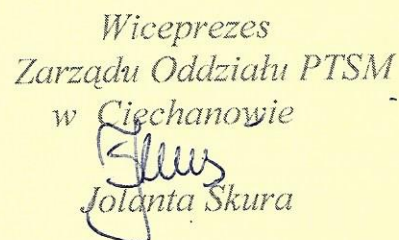 Wiceprezes
Zarządu Oddziału PTSM
w Ciechanowie
Jolanta Skura